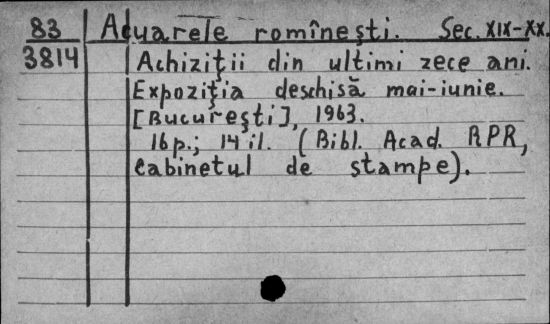 83 Acuarele romînești. Sec. XIX-XX.
3814 Achiziții din ultimi zece ani.
Expoziția deschisă mai-iunie.
[București], 1963.
16 p.; 14 il. (Bibl. Acad. RPR,
Cabinetul de stampe).